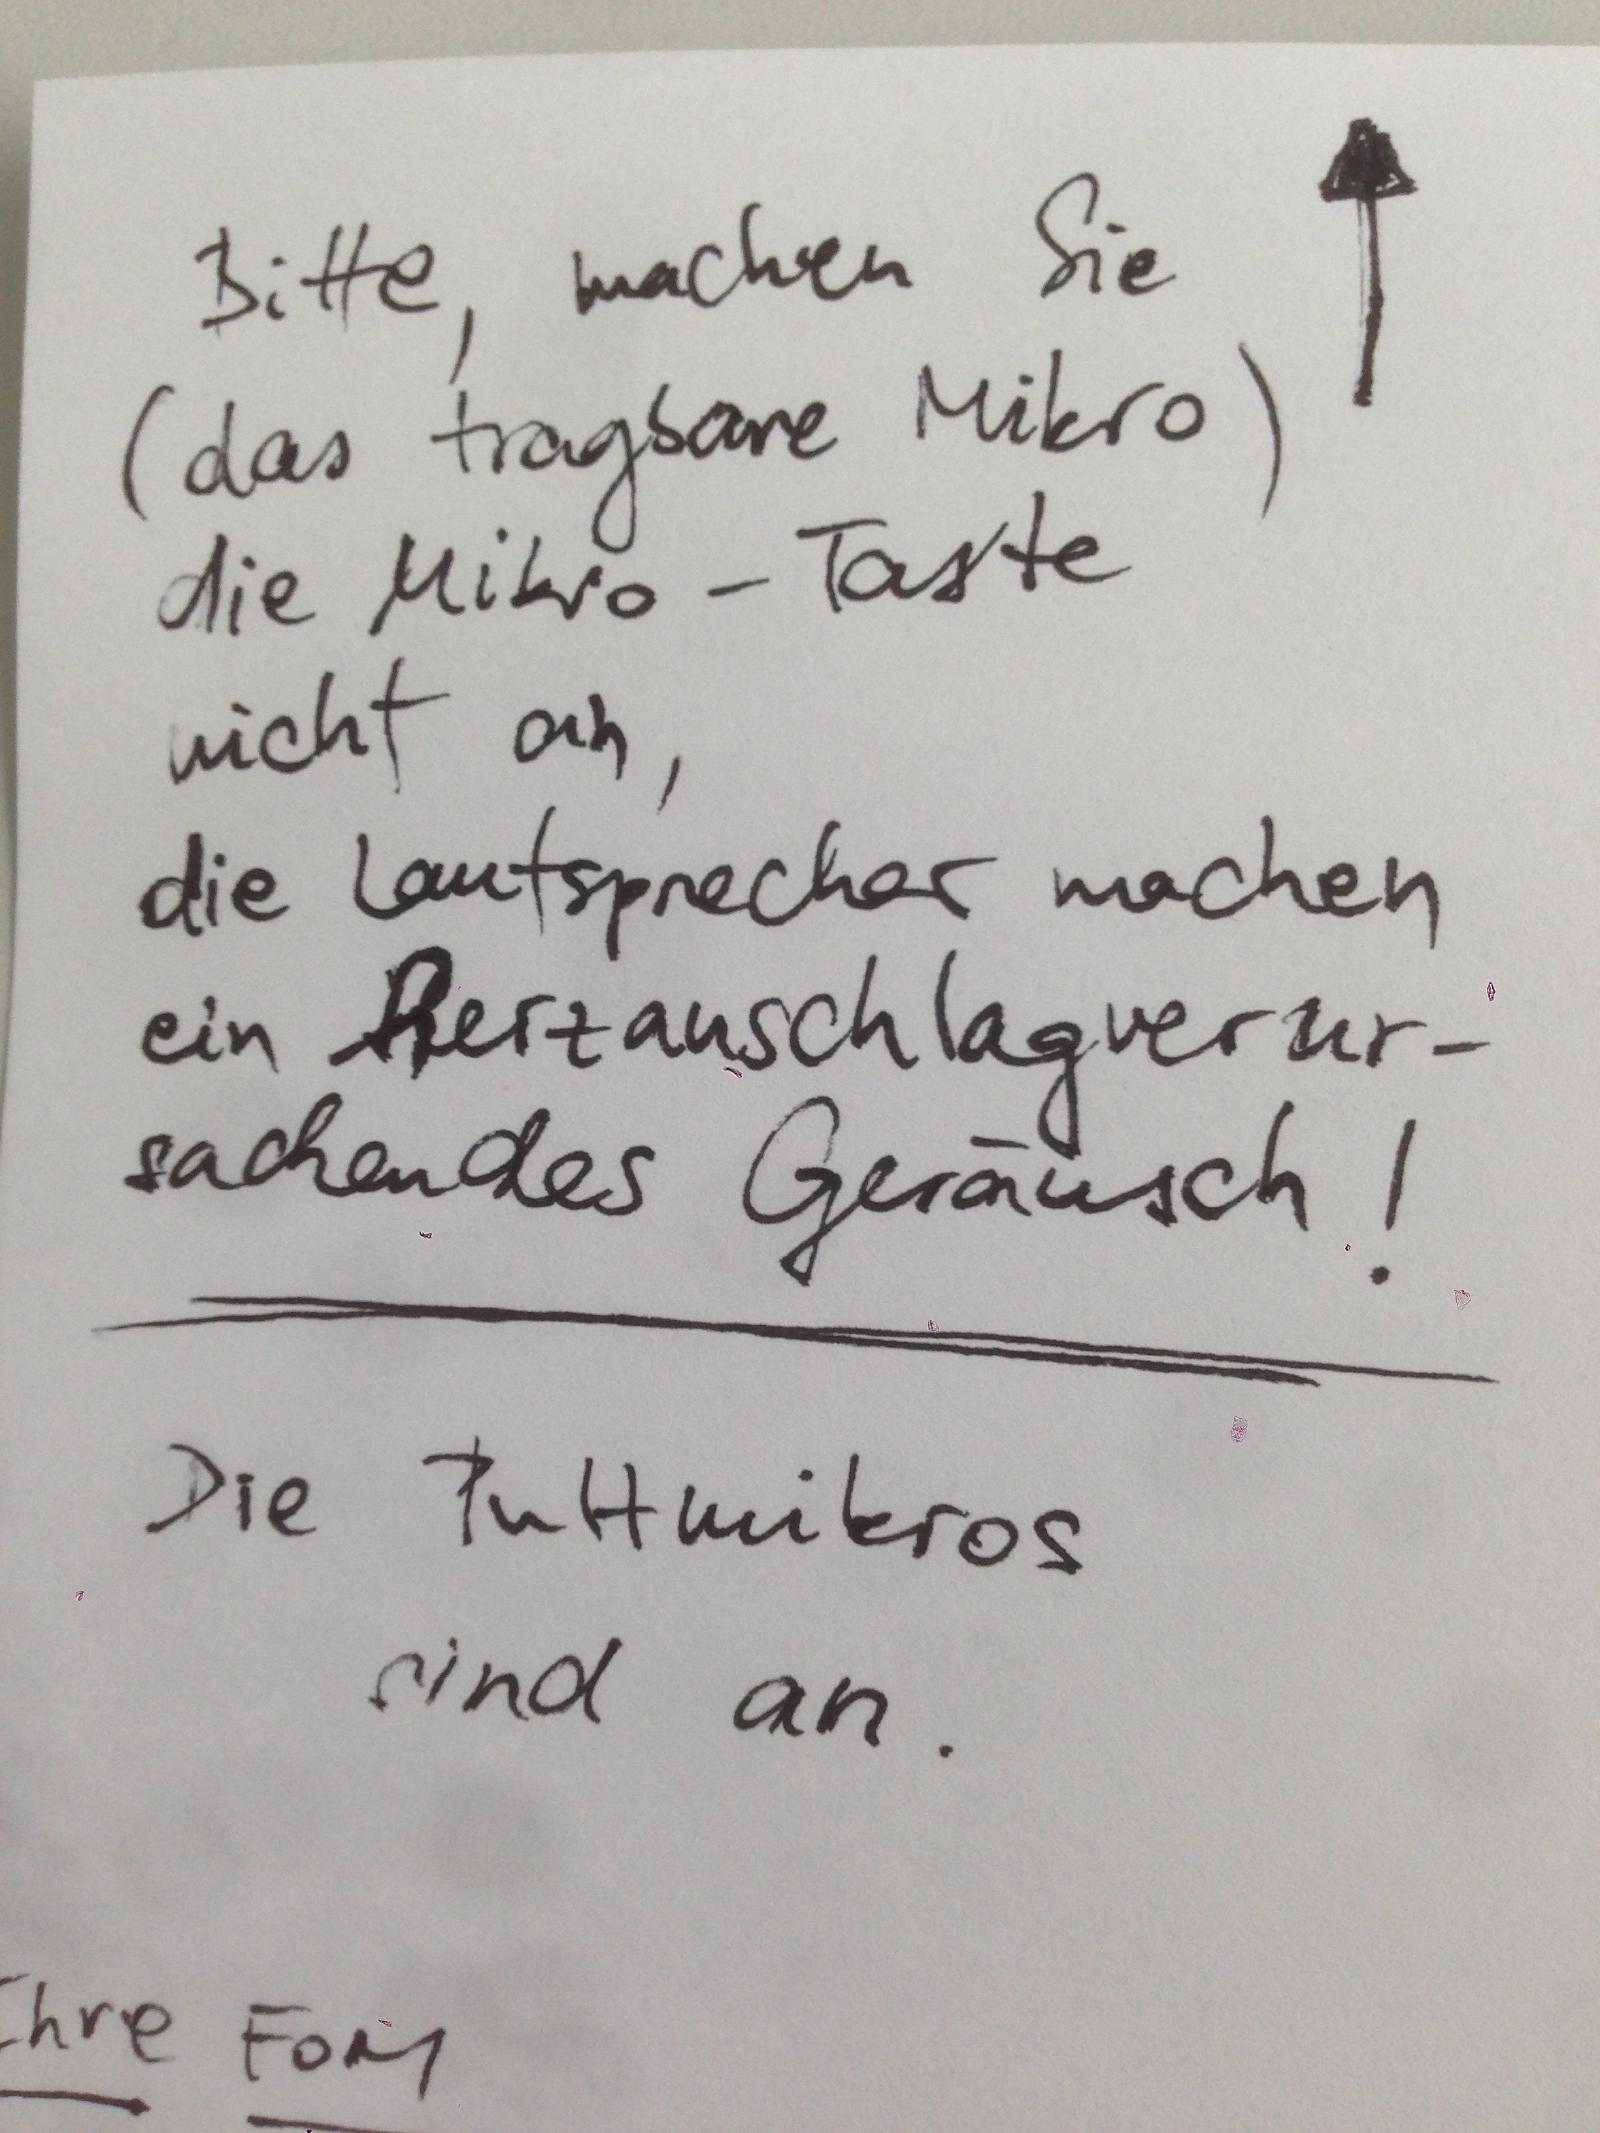 Bitte, machen Sie
(das tragbare Mikro)
die Mikro-Taste
nicht an,
die Lautsprecher machen
ein Herzanschlagverur-
sachendes Geräusch!
Die Pultmikros
sind an.
Ihre